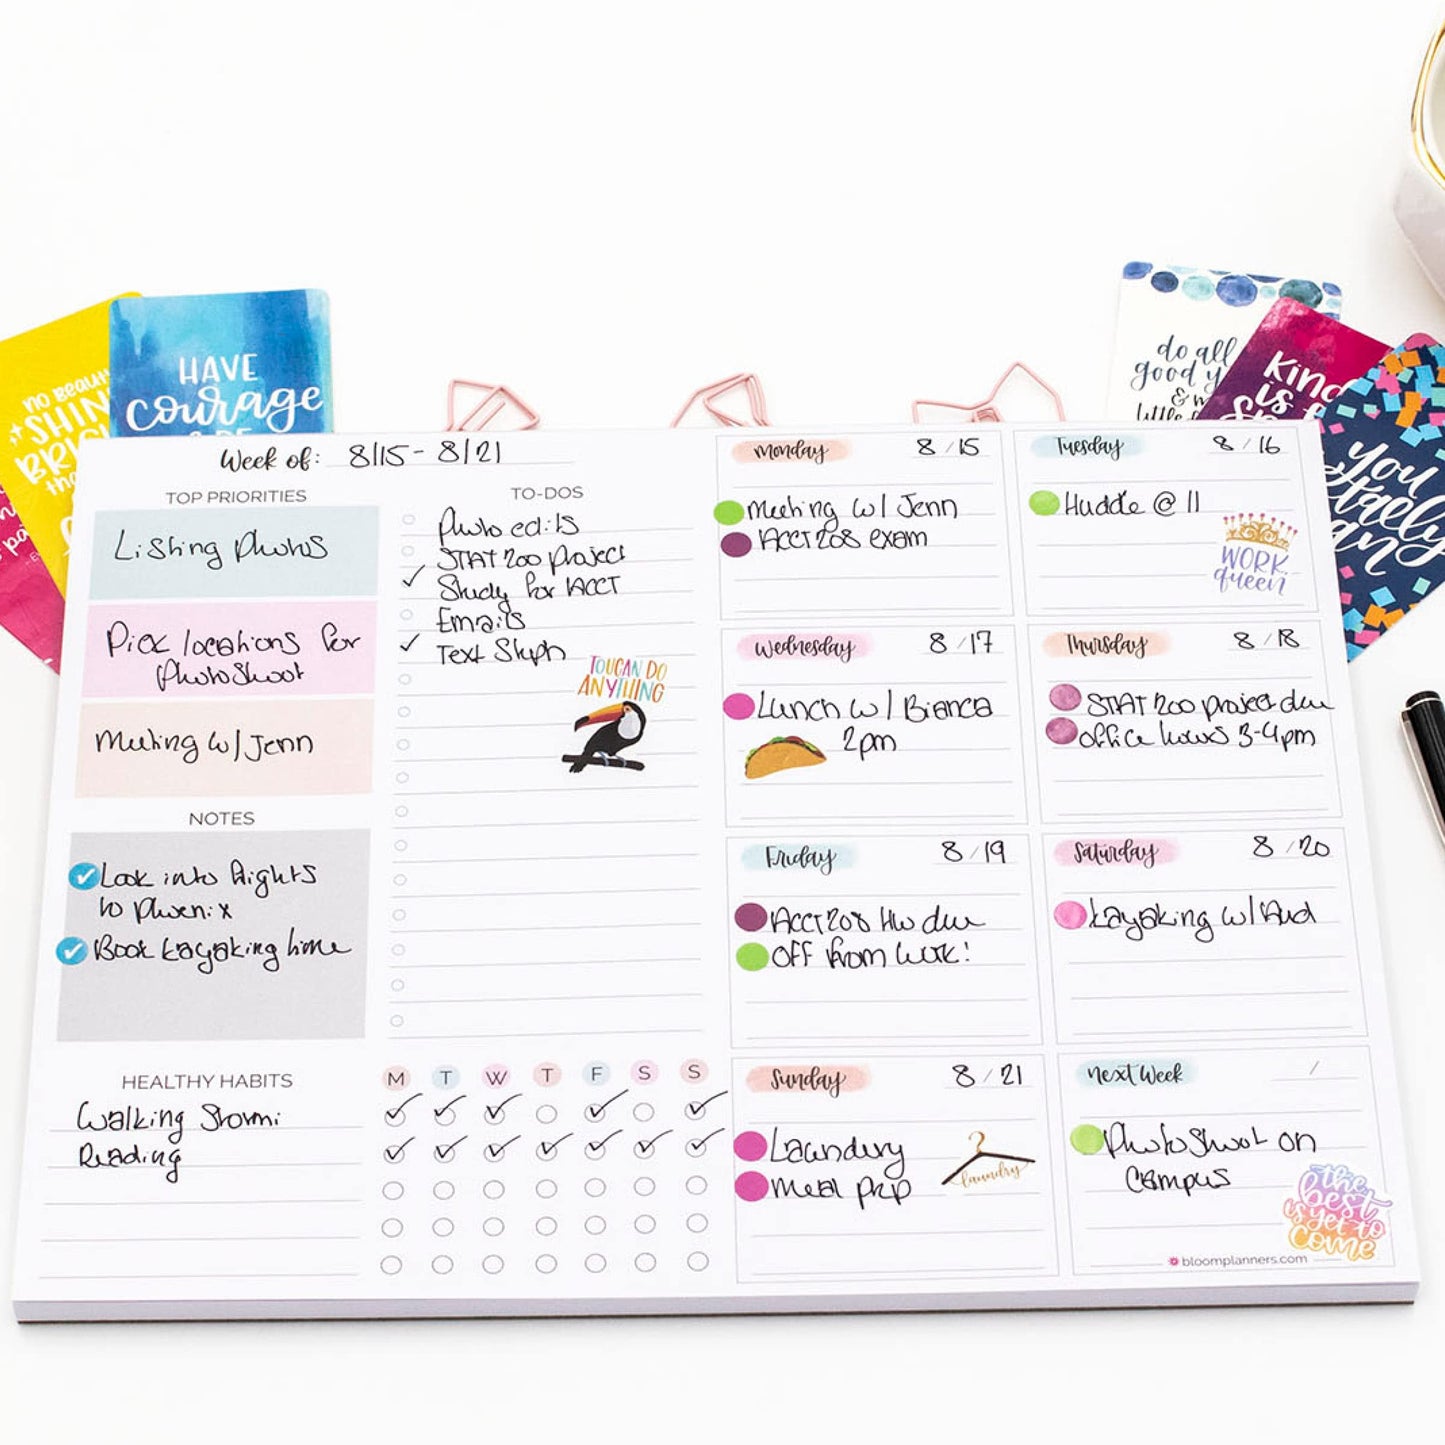 NO BEAUTY
SHIN
BRIGH
tha
HAVE
courage
& BE
do all
good y
& m
little
Kind
is f
Sp
you
totally
can
Week of: 8/15 - 8/21
TOP PRIORITIES
Listing photos
Pick locations for
photoshoot
Meeting w/ Jenn
NOTES
Look into flights
to phoenix
Book kayaking time
HEALTHY HABITS
M T W T F S S
Walking Stormi
Reading
TO-DOS
photo edits
STAT 200 project
✓ Study for ACCT
Emails
✓ Text Steph
TOUCAN DO
ANYTHING
Monday 8/15
Meeting w/ Jenn
ACCT 208 exam
Tuesday 8/16
Huddle @ 11
WORK
queen
Wednesday 8/17
Lunch w/ Bianca
2pm
Thursday 8/18
STAT 200 project due
office hours 3-4pm
Friday 8/19
ACCT 208 HW due
OFF from work!
Saturday 8/20
Kayaking w/ Aud
Sunday 8/21
Laundry
Meal prep
laundry
next Week /
Photoshoot on
campus
the
best
is yet to
come
bloomplanners.com